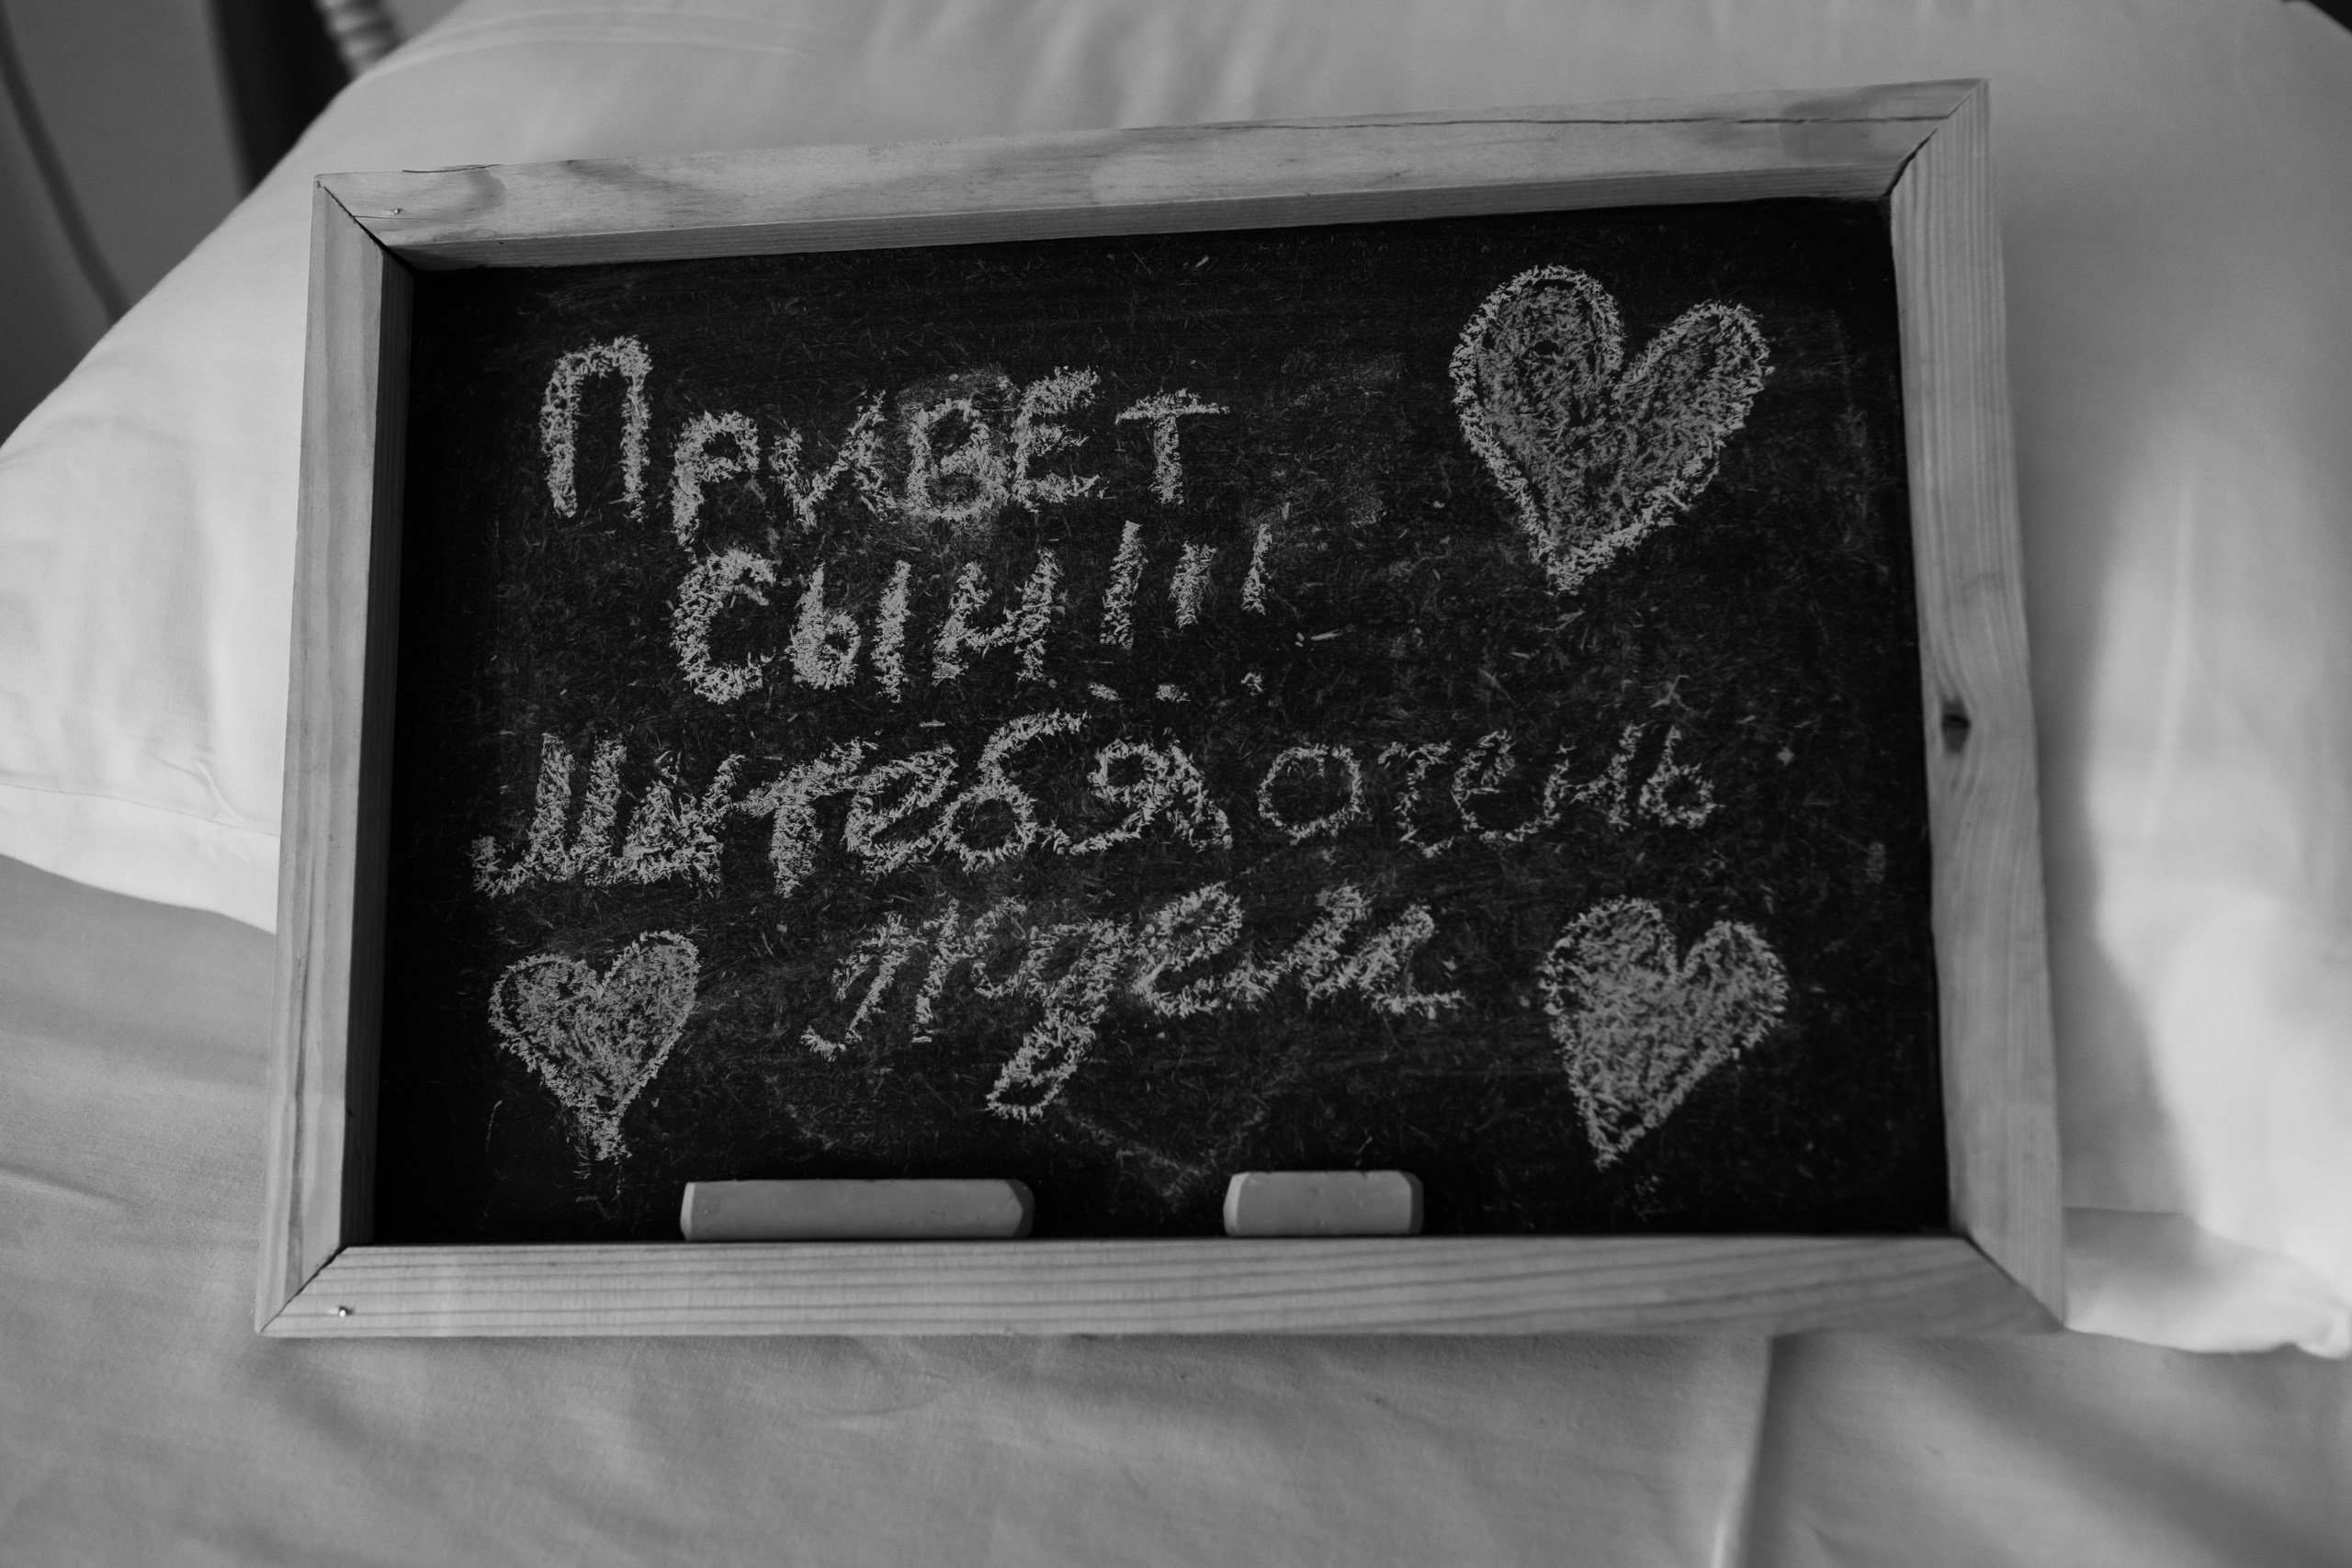 Привет
Сын!!!
Мы тебя очень
ждем